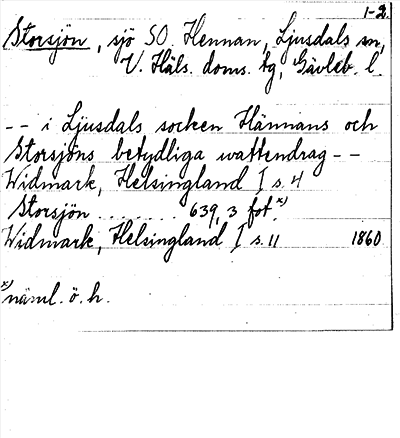 1-2
Storsjön, sjö SO Hennan, Ljusdals sn,
V. Häls. doms. tg, Gävleb. l.
-- i Ljusdals socken Hännans och
Storsjöns betydliga wattendrag --
Widmark, Helsingland I s. 4
Storsjön . . . . . . . 639,3 fot. x)
Widmark, Helsingland I s. 11 1860
x) näml. ö. h.